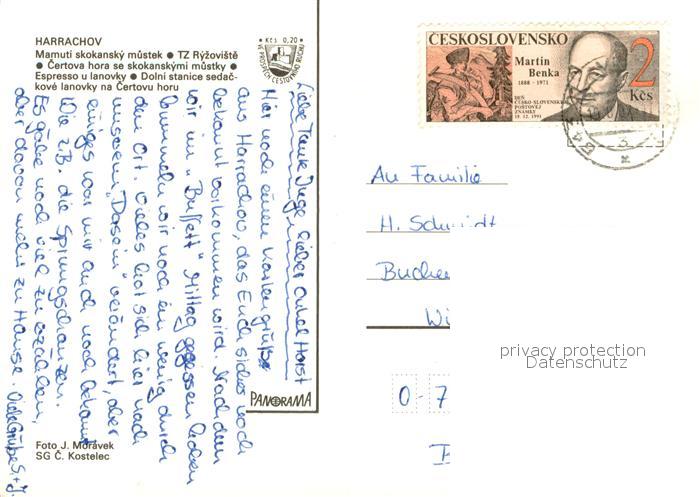 HARRACHOV
Mamutí skokanský můstek ● TZ Rýžoviště
● Čertova hora se skokanskými můstky ●
Espresso u lanovky ● Dolní stanice sedač-
kové lanovky na Čertovu horu
● Kčs 0,20 ●
VE PROSPĚCH CESTOVNÍHO RUCHU
Liebe Tante Inge, lieber Onkel Horst
Hier noch einen Kartengruß
aus Harrachov, das Euch sicher noch
bekannt vorkommen wird. Nachdem
wir im "Buffett" Mittag gegessen haben
bummeln wir noch ein wenig durch
den Ort. Vieles hat sich hier nach
unserem "Dasein" verändert, aber
einiges war mir auch noch bekannt
wie z.B. die Sprungschanzen.
Es gäbe noch viel zu erzählen,
aber davon mehr zu Hause. Viele Grüße
PANORAMA
Foto J. Morávek
SG Č. Kostelec
ČESKOSLOVENSKO
Martin
Benka
1888 - 1971
DEN
ČESKO-SLOVENSKEJ
POŠTOVEJ
ZNÁMKY
18. 12. 1991
2
Kčs
An Familie
H. Schmidt
Buche
Wi
0-7
privacy protection
Datenschutz